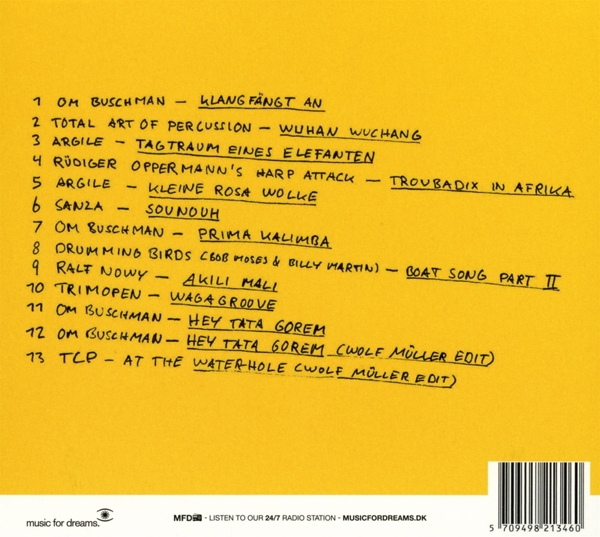 1 OM BUSCHMAN – KLANG FÄNGT AN
2 TOTAL ART OF PERCUSSION – WUHAN WUCHANG
3 ARGILE – TAGTRAUM EINES ELEFANTEN
4 RÜDIGER OPPERMANN'S HARP ATTACK – TROUBADIX IN AFRIKA
5 ARGILE – KLEINE ROSA WOLKE
6 SANZA – SOUNOUH
7 OM BUSCHMAN – PRIMA KALIMBA
8 DRUMMING BIRDS (BOB MOSES & BILLY MARTIN) – BOAT SONG PART II
9 RALF NOWY – AKILI MALI
10 TRIMOPEN – WAGAGROOVE
11 OM BUSCHMAN – HEY TATA GOREM
12 OM BUSCHMAN – HEY TATA GOREM (WOLF MÜLLER EDIT)
13 TCP – AT THE WATERHOLE (WOLF MÜLLER EDIT)
music for dreams.
MFD - LISTEN TO OUR 24/7 RADIO STATION - MUSICFORDREAMS.DK
5 709498 213460